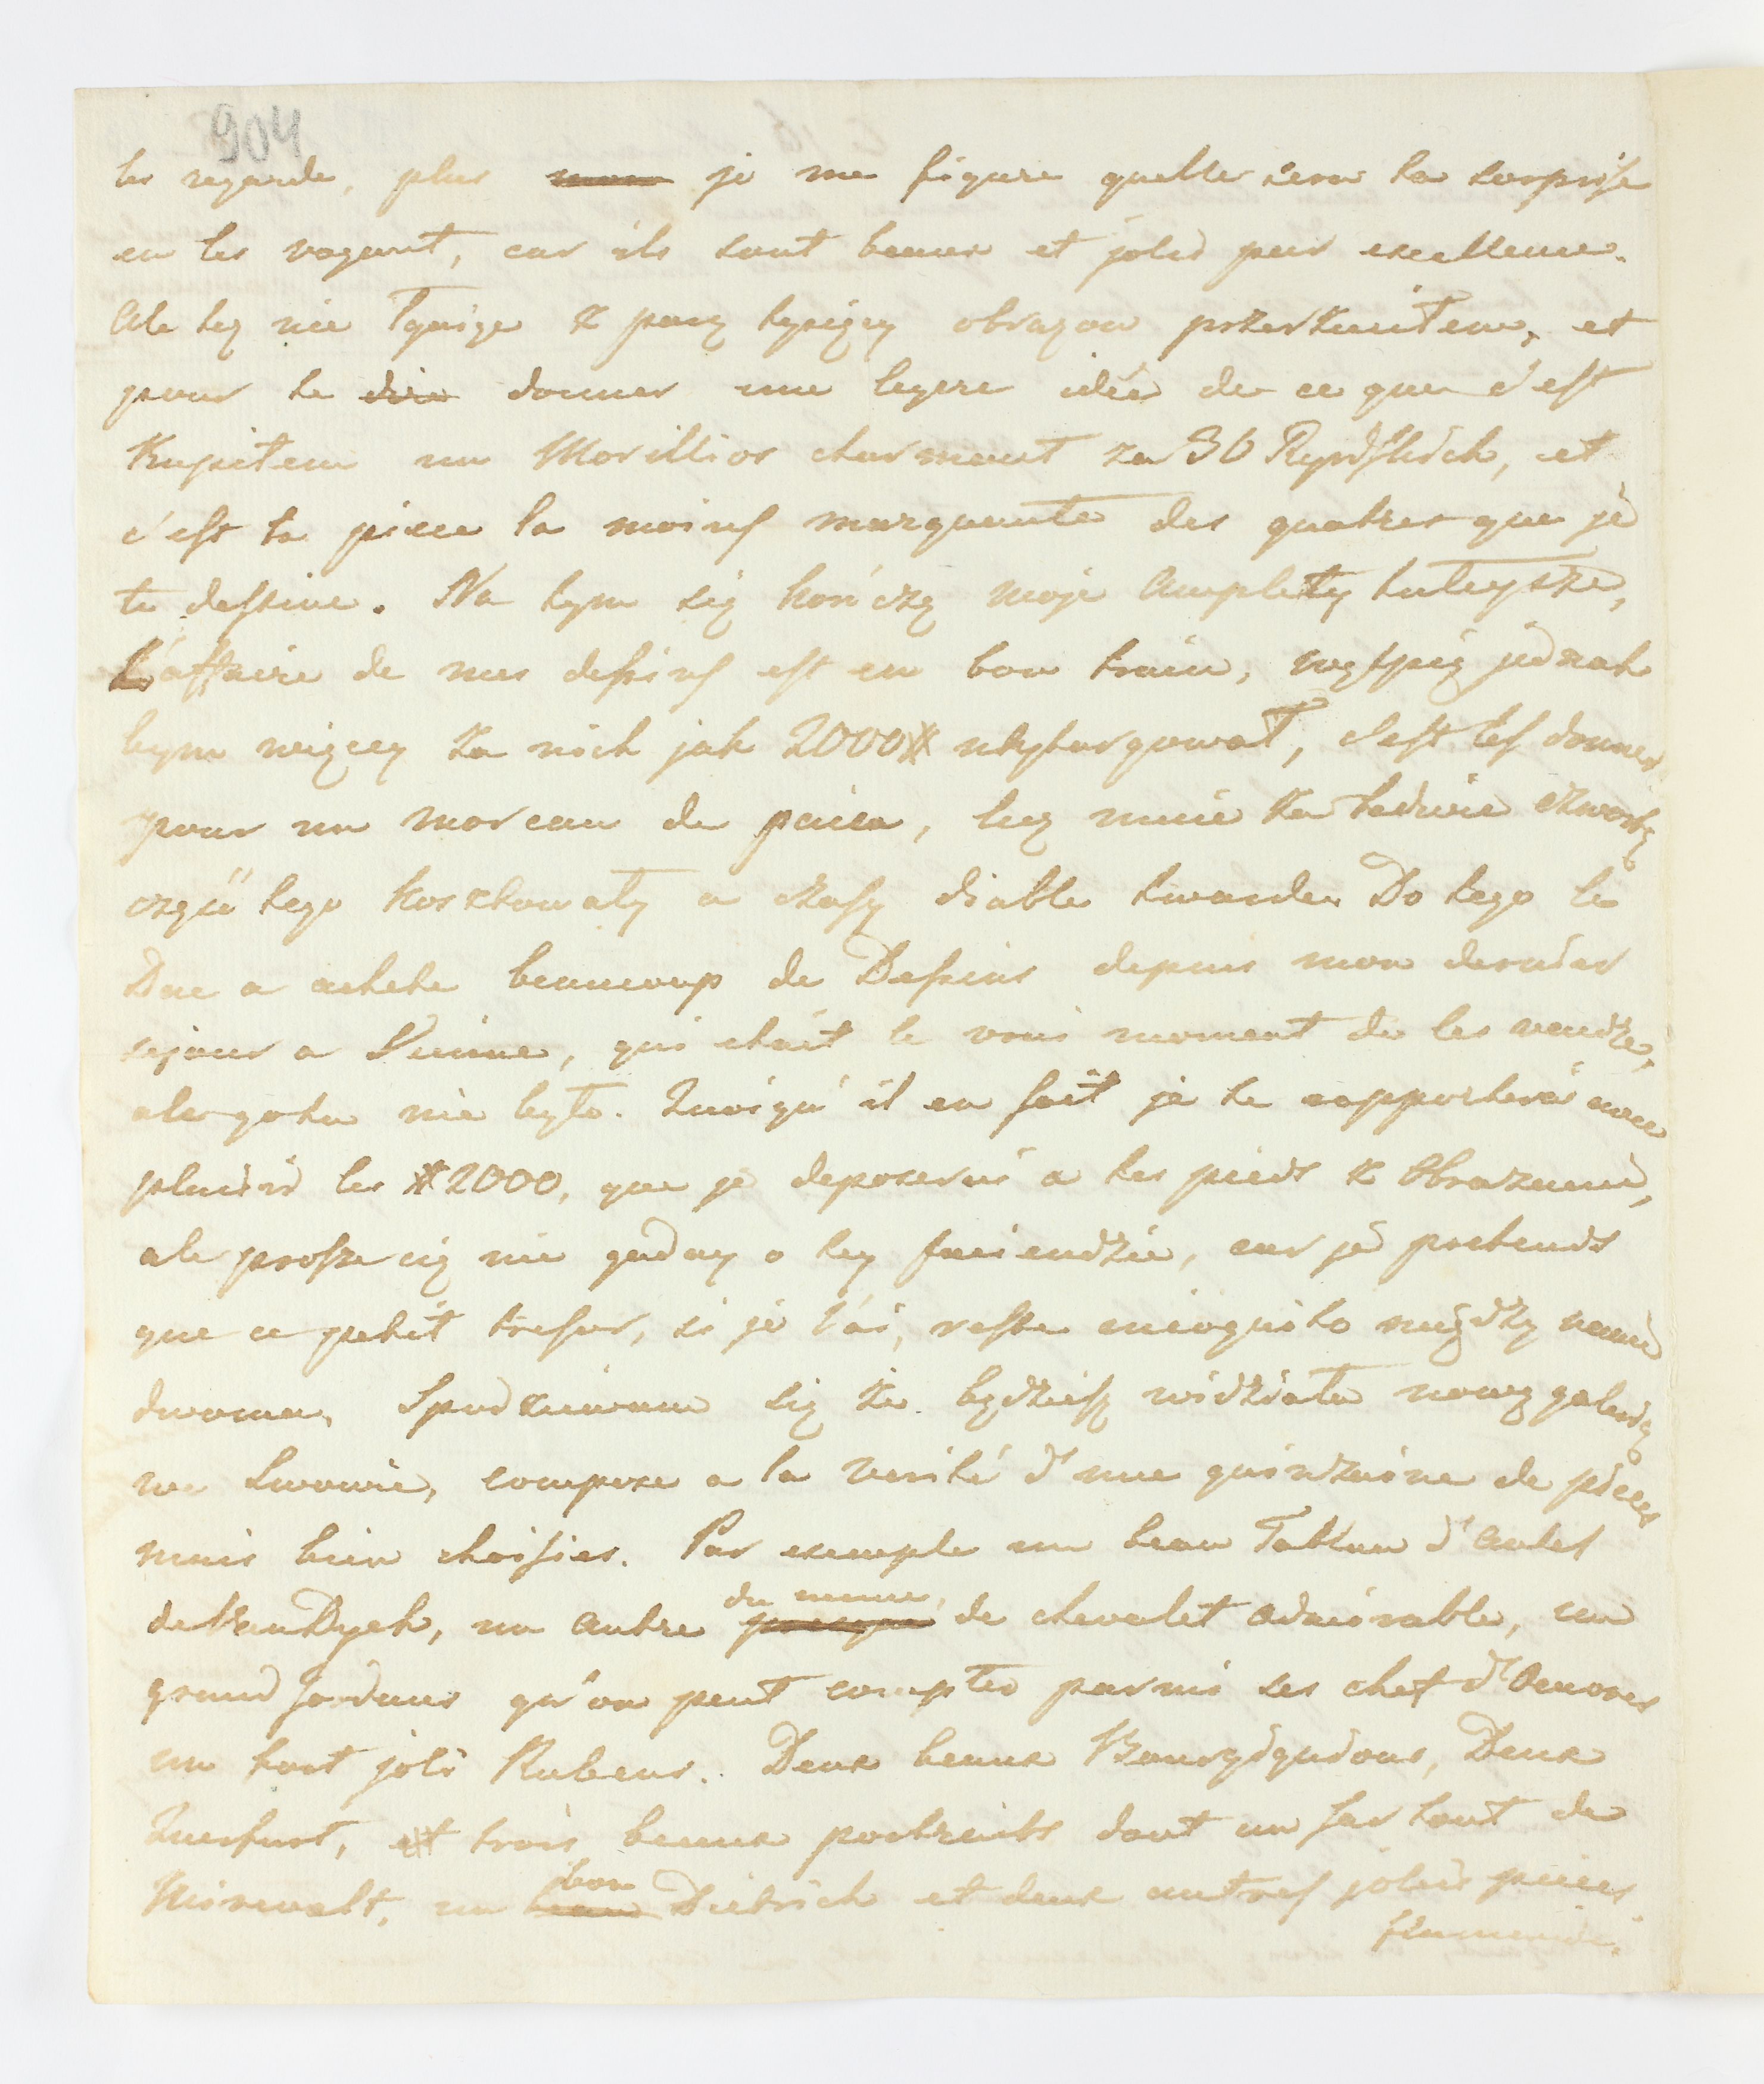 904
les regarde, plus je me figure quelle sera ta surprise
en les voyant, car ils sont beaux et jolis par excellence.
Ale tez nie z parą tysięcy obrazow przerzuciłem, et
pour te dire donner une legere idée de ce que c'est
Kupiłem un Morillios charmant za 36 Ryńskich, et
c'est la piece la moins marquante des quatres que je
te destine. Na tym się kończą moje Amplety tuteysze,
L'affaire de mes dessins est en bon train, wątpię jednak
bym więcey za nich jak 2000# wytargował, c'est les donner
pour un morceau de pain, bez mnie za ledwie czwartą
częsć tego kosztowały a czasy diable twarde. Do tego le
Duc a achete beaucoup de Dessins depuis mon dernier
sejour a Vienne, qui etait le vrai moment de les vendre,
ale gotu nie było. Quoiqu'il en soit je te rapporterai avec
plaisir les #2000, que je deposerai a tes pieds z Obrazami,
ale prosze cię nie gaday o tey, car je pretends
que ce petit tresor, si je l'ai, reste incognito między nami
dwoma. Spodziewam się że będziesz widziała nową galerią
we Lwowie, compose a la verité d'une quinzaine de pieces
mais bien choisies. Par exemple un beau Tableau d'Autel
de VanDyck, un autre du meme, de chevalet admirable, un
grand Jordans qu'on peut compter parmi ses chef d'Oeuvres
un fort joli Rubens. Deux beaux Bourgignons, Deux
Querfurt, et trois beaux portraits dont un sur tout de
Mirevelt, un beau bon Dietrich et deux autres jolies pieces
flamandes.